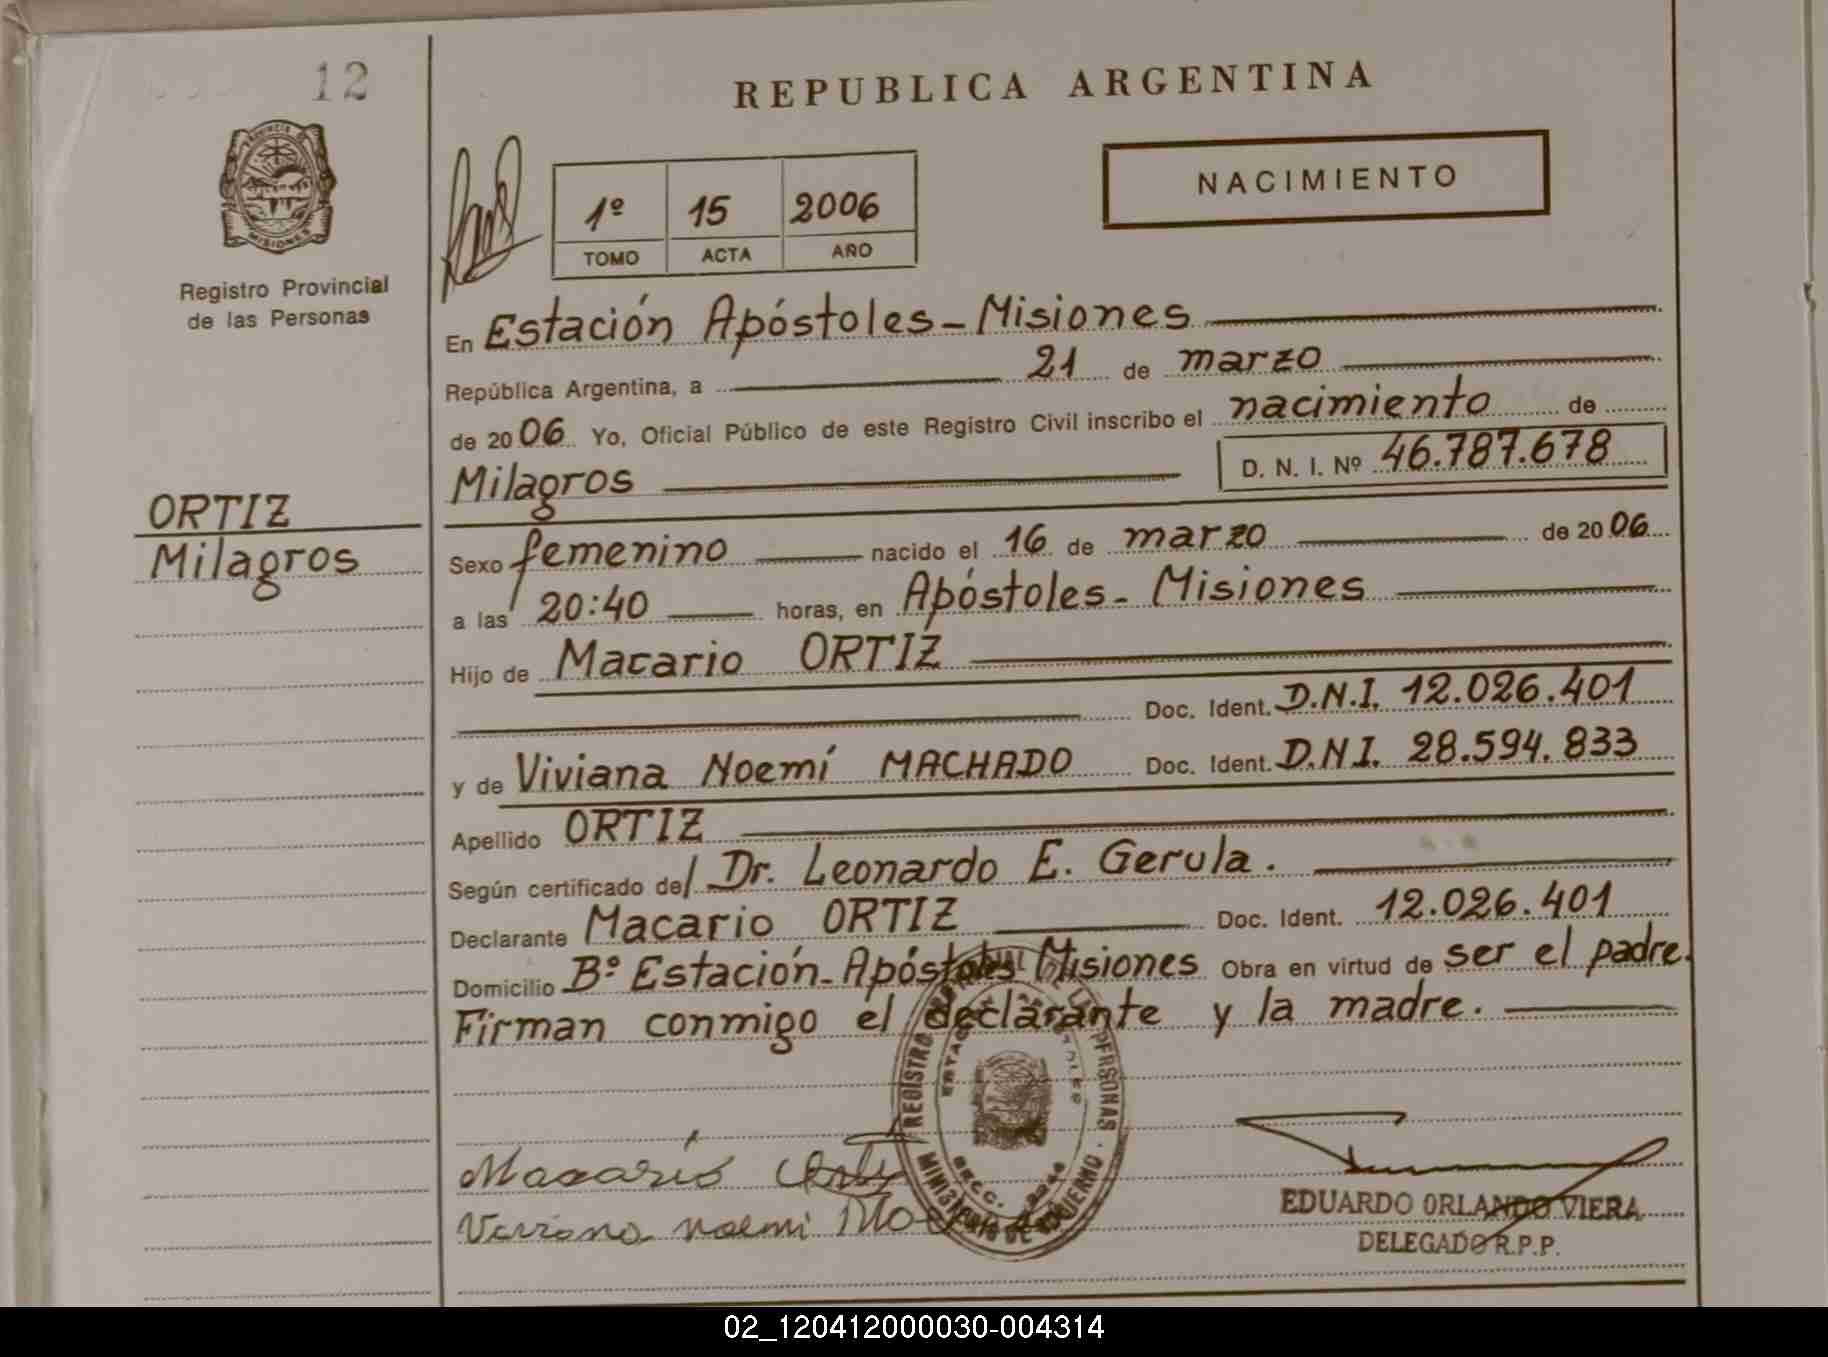 12
PROVINCIA DE
MISIONES
Registro Provincial
de las Personas
ORTIZ
Milagros
REPUBLICA ARGENTINA
NACIMIENTO
1º 15 2006
TOMO ACTA AÑO
En Estación Apóstoles - Misiones
República Argentina, a 21 de marzo
de 2006 Yo, Oficial Público de este Registro Civil inscribo el nacimiento de
Milagros D. N. I. Nº 46.787.678
Sexo femenino nacido el 16 de marzo de 2006
a las 20:40 horas, en Apóstoles - Misiones
Hijo de Macario ORTIZ
Doc. Ident. D.N.I. 12.026.401
y de Viviana Noemí MACHADO Doc. Ident. D.N.I. 28.594.833
Apellido ORTIZ
Según certificado del Dr. Leonardo E. Gerula.
Declarante Macario ORTIZ Doc. Ident. 12.026.401
Domicilio Bº Estación - Apóstoles Misiones Obra en virtud de ser el padre.
Firman conmigo el declarante y la madre.
REGISTRO PROVINCIAL DE LAS PERSONAS
MINISTERIO DE GOBIERNO
Macario Ortiz
Viviana noemi
EDUARDO ORLANDO VIERA
DELEGADO R.P.P.
02_120412000030-004314